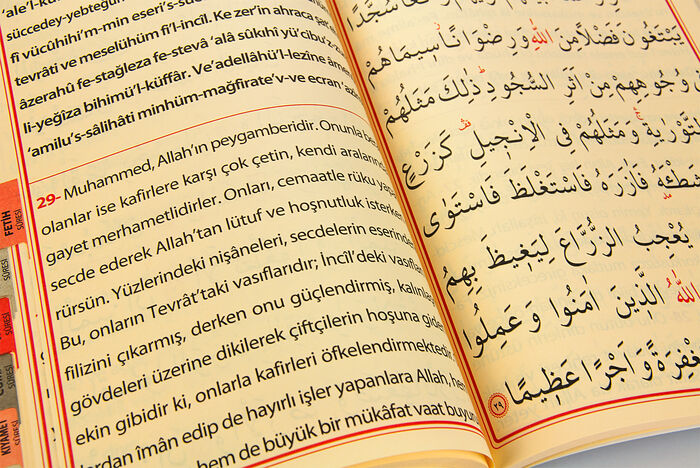 'ale'l-kü
süccedey-yebteğun
fî vücûhihi'm-min eseri's-sü
tevrâti ve meselühüm fi'l-incîl. Ke zer'in ahraca şat
âzerahü fe-stağleza fe-stevâ 'alâ sûkıhî yü'cibu'z-z
li-yeğîza bihimü'l-küffâr. Ve'adellâhü'l-lezîne âme
'amilu's-sâlihâti minhüm-mağfirate'v-ve ecran 'az
29- Muhammed, Allah'ın peygamberidir. Onunla be
olanlar ise kafirlere karşı çok çetin, kendi aralarınd
gayet merhametlidirler. Onları, cemaatle rükû yap
secde ederek Allah'tan lütuf ve hoşnutluk isterken
rürsün. Yüzlerindeki nişâneleri, secdelerin eserinde
Bu, onların Tevrât'taki vasıflarıdır; İncîl'deki vasıfla
filizini çıkarmış, derken onu güçlendirmiş, kalınla
gövdeleri üzerine dikilerek çiftçilerin hoşuna gide
ekin gibidir ki, onlarla kafirleri öfkelendirmektedir
lardan îmân edip de hayırlı işler yapanlara Allah, hem
hem de büyük bir mükâfat vaat buyur
FETİH
SÛRESİ
SÛRESİ
SÛRESİ
SÛRESİ
KIYAMET
سُجَّدًا
يَبْتَغُونَ فَضْلًا مِنَ اللّٰهِ وَرِضْوَانًا سِيمَاهُمْ
وُجُوهِهِمْ مِنْ اَثَرِ السُّجُودِ ذٰلِكَ مَثَلُهُمْ
التَّوْرٰيةِ وَمَثَلُهُمْ فِى الْاِنْجِيلِ كَزَرْعٍ
شَطْپَهُ فَاٰزَرَهُ فَاسْتَغْلَظَ فَاسْتَوٰى
يُعْجِبُ الزُّرَّاعَ لِيَغِيظَ بِهِمُ
اللّٰهُ الَّذِينَ اٰمَنُوا وَعَمِلُوا
مَغْفِرَةً وَاَجْرًا عَظِيمًا ٢٩